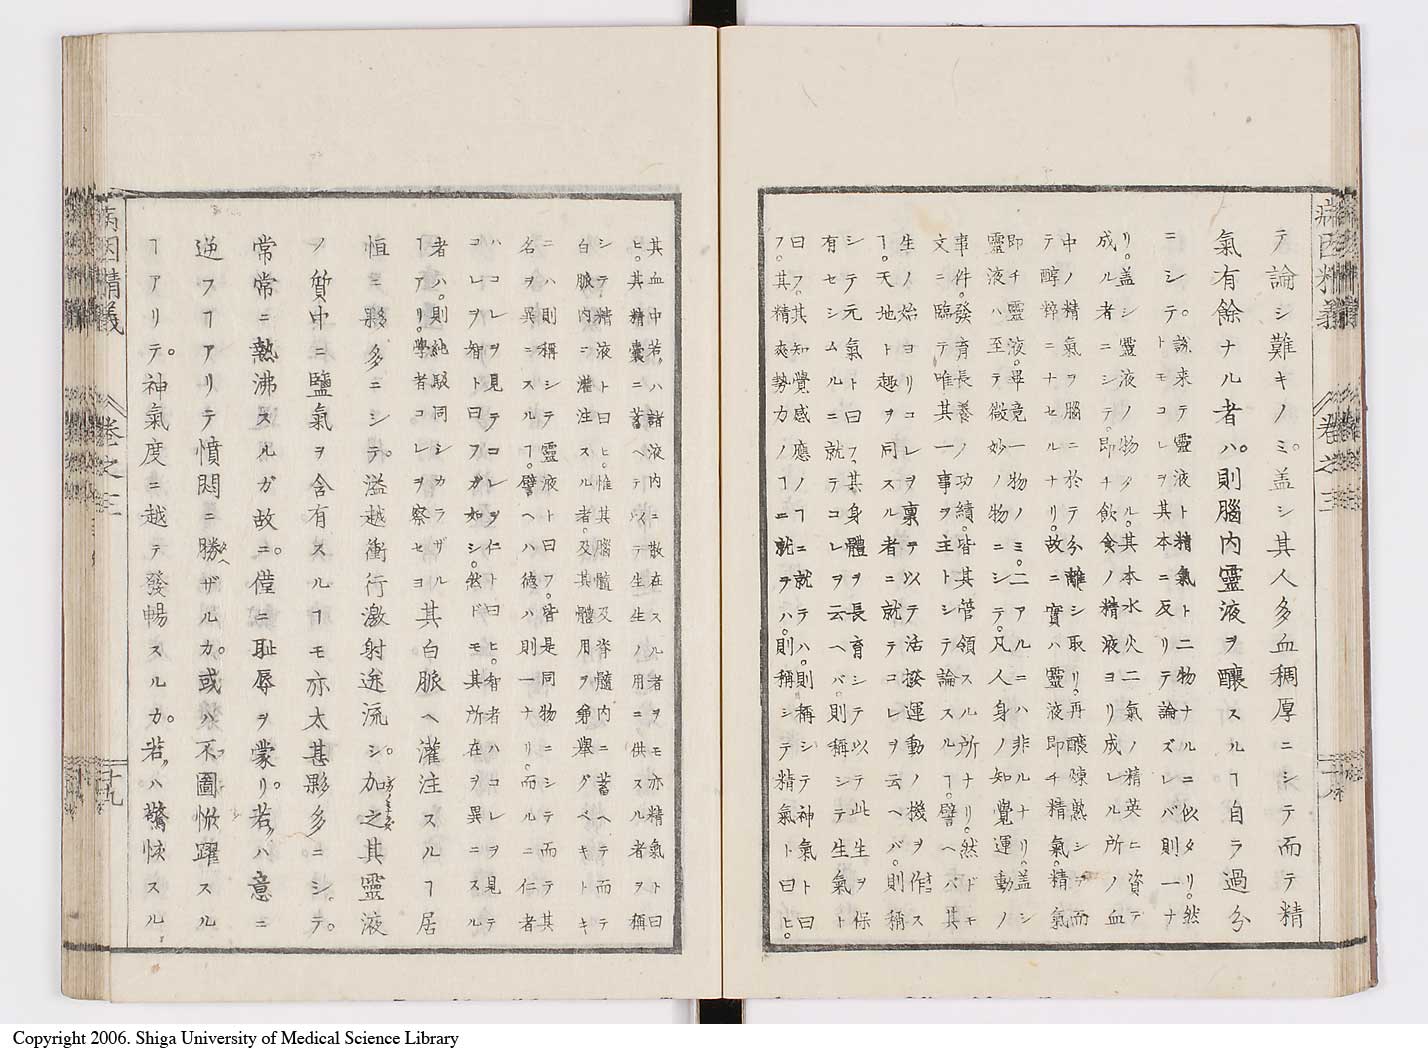 病因精義
卷之三
テ論シ難キノミ。盖シ其人多血稠厚ニシテ而テ精
氣有餘ナル者ハ。則腦内靈液ヲ釀スルヿ自ラ過分
ニシテ。詠来テ靈液ト精氣ト二物ナルニ似タリ。然
トモコレヲ其本ニ反リテ論ズレバ則一ナ
リ。盖シ靈液ノ物タル。其本水火二氣ノ精英ニ資テ
成ル者ニシテ。即チ飲食ノ精液ヨリ成レル所ノ血
中ノ精氣ヲ腦ニ於テ分離シ取リ。再釀煉熟シテ而
テ醇粹ニナセルナリ。故ニ實ハ靈液即チ精氣。精氣
即チ靈液。畢竟一物ノミ。二アルニハ非ルナリ。盖シ
靈液ハ至テ微妙ノ物ニシテ。凡人身ノ知覺運動ノ
事件。發育長養ノ功績。皆其管領スル所ナリ。然ドモ
文ニ臨テ唯其一事ヲ主トシテ論スルヿ。譬ヘバ其
生ノ始ヨリコレヲ稟ヲ以テ活潑運動ノ機ヲ作ス
ヿ。天地ト趣ヲ同スル者ニ就テコレヲ云ヘバ。則稱
シテ元氣ト曰フ。其身體ヲ長育シテ以テ此生ヲ保
有セシムルニ就テコレヲ云ヘバ。則稱シテ生氣ト
曰フ。其知覺感應ノヿニ就テハ。則稱シテ神氣ト曰
フ。其精爽勢力ノヿニ就ヲハ。則稱シテ精氣ト曰ヒ。
其血中若ハ諸液内ニ散在スル者ヲモ亦精氣ト曰
ヒ。其精囊ニ蓄ヘテ以テ生生ノ用ニ供スル者ヲ稱
シテ精液ト曰ヒ。惟其腦髓及脊髓内ニ蓄ヘテ而テ
白脈内ニ灌注スル者。及其體用ヲ舉グベキトキ
ニハ則稱シテ靈液ト曰フ。皆是同物ニシテ而テ其
名ヲ異ニスルヿ。譬ヘハ德ハ則一ナリ。而ルニ仁者
ハコレヲ見テコレヲ仁ト曰ヒ。智者ハコレヲ見テ
コレヲ智ト曰フガ如シ。然ドモ其所在ヲ異ニスル
者ハ。則純駁同シカラザル
ヿアリ。學者コレヲ察セヨ
其白脈ヘ灌注スルヿ居
恒ニ夥多ニシテ。溢越衝行激射迸流シ。加之其靈液
ノ質中ニ鹽氣ヲ含有スルヿモ亦太甚夥多ニシテ。
常常ニ熱沸スルガ故ニ。僅ニ耻辱ヲ蒙リ。若ハ意ニ
逆フヿアリテ憤悶ニ勝ザルカ。或ハ不圖惞躍スル
ヿアリテ。神氣度ニ越テ發暢スルカ。若ハ驚怏スル
病因精義
卷之三
十九